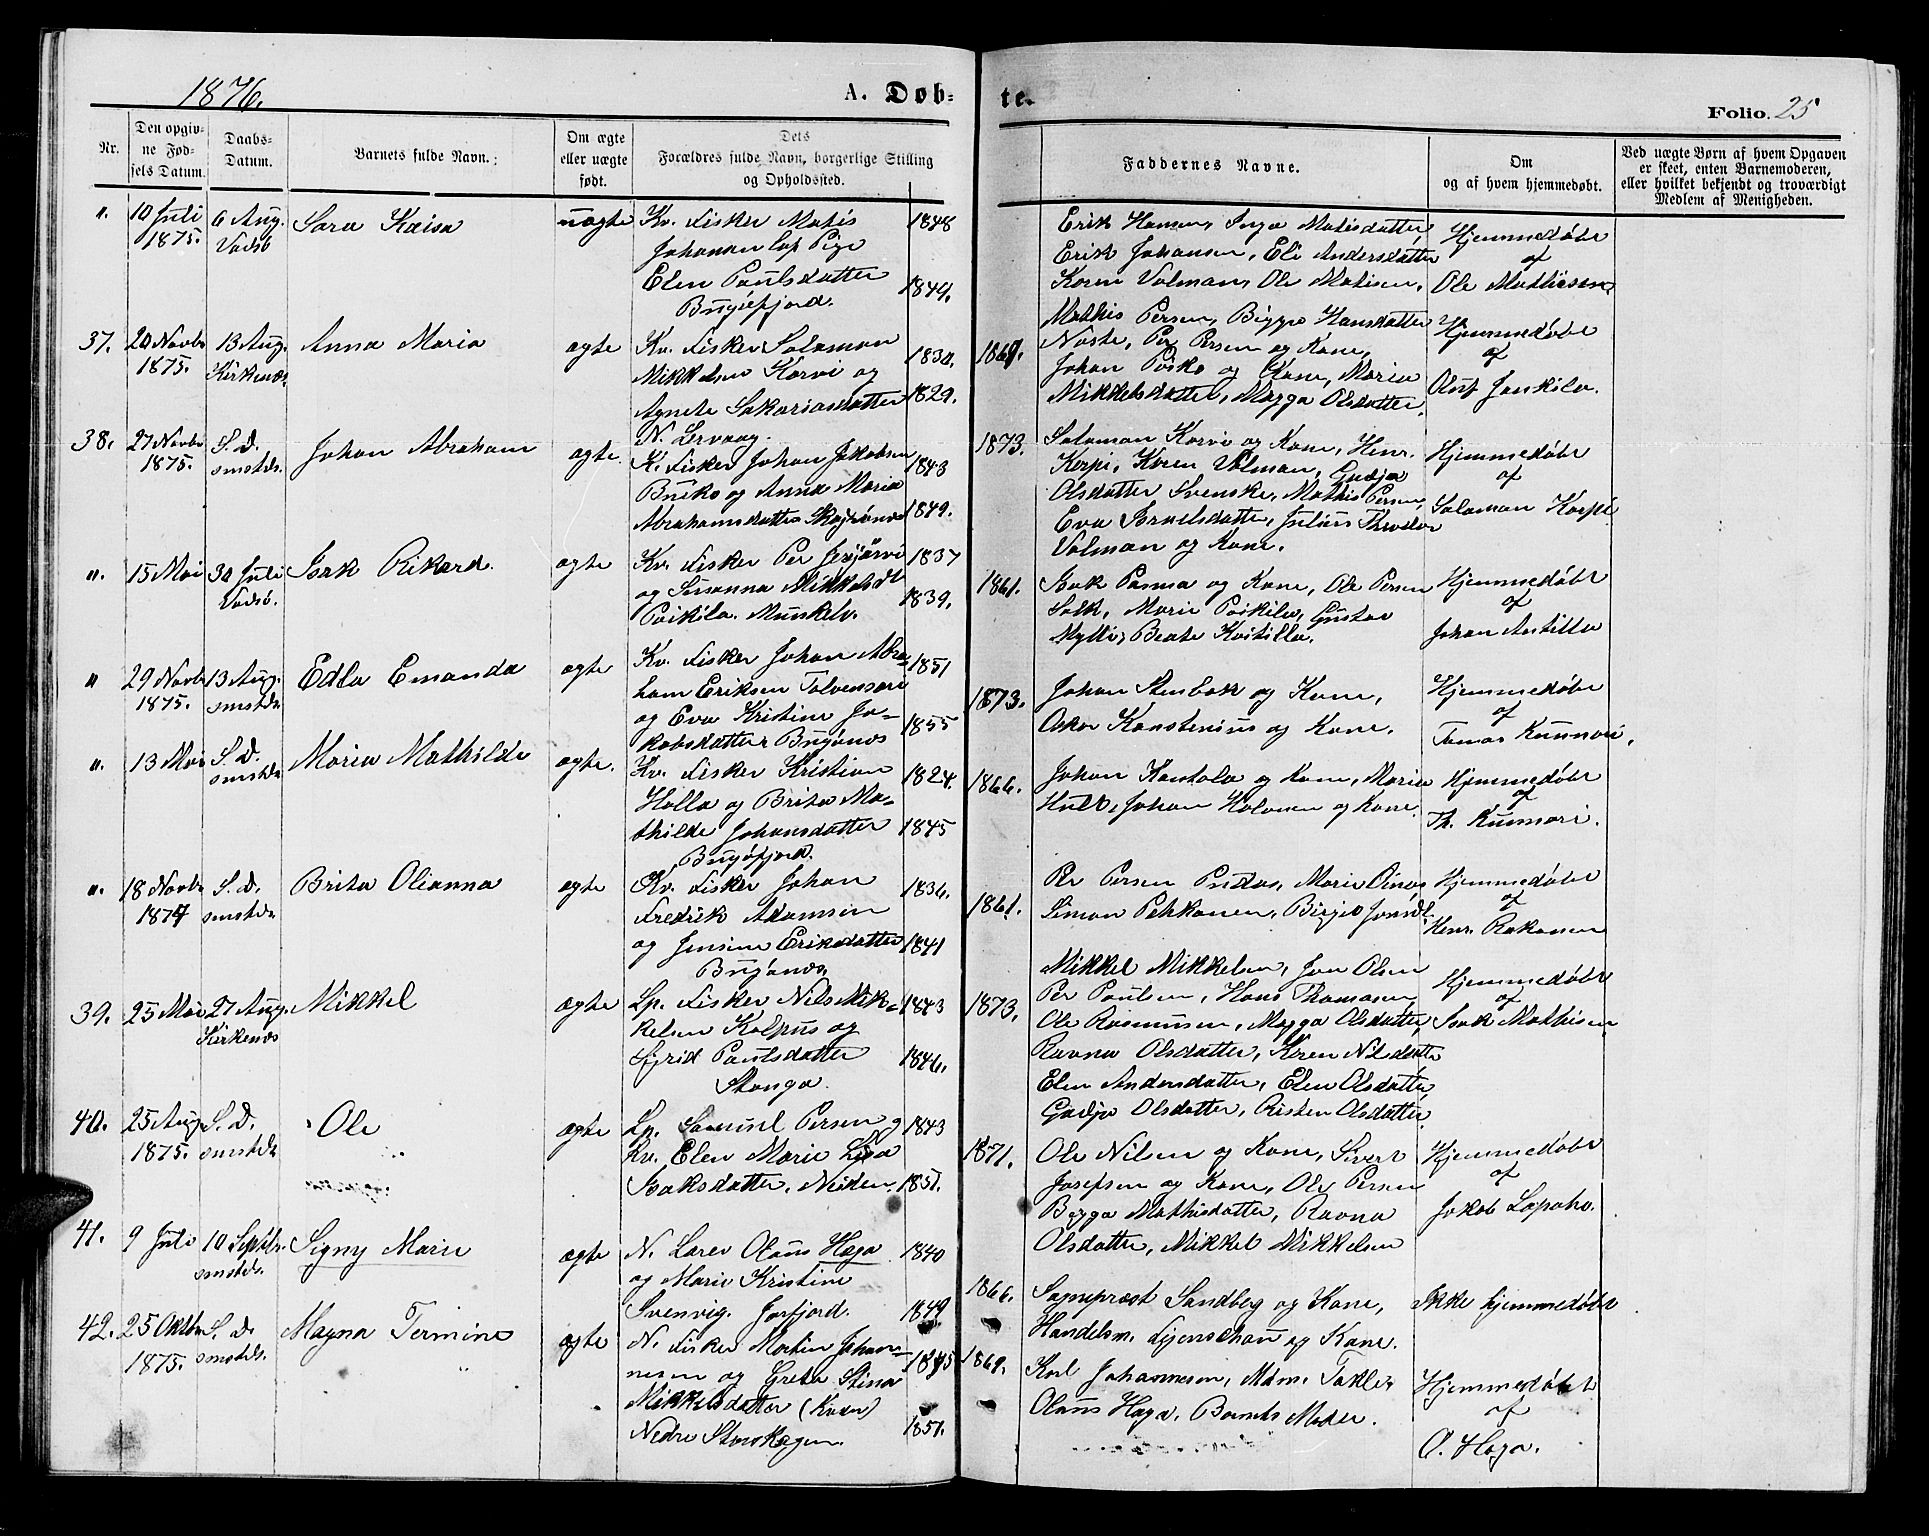 1876.
A. Døb-
te.
Folio. 25
Nr.
Den opgiv-
ne Fød-
sels Datum.
Daabs-
Datum.
Barnets fulde Navn.
Om ægte
eller uægte
født.
Dets
Forældres fulde Navn, borgerlige Stilling
og Opholdssted.
Faddernes Navne.
Om
og af hvem hjemmedøbt.
Ved uægte Børn af hvem Opgaven
er skeet, enten Barnemoderen,
eller hvilket bekjendt og troværdigt
Medlem af Menigheden.
". 10 Juli 1875. 6 Aug. Vadsø Sara Kaisa uægte
Kv. Fisker Matis 1848
Johansen Lap Pige
Elen Paulsdatter 1844.
Bugøfjord.
Erik Hansen, Inga Matisdatter,
Erik Johansen, Eli Andersdatter
Koren Valman, Ole Matisen,
Hjemmedøbt
af
Ole Mathisen
37. 20 Novbr 1875. 13 Aug. Kirkenæs Anna Maria ægte
Kv. Fisker Salomon 1830.
Mikkelsen Korvi og
Agneta Sakariasdatter 1829.
N. Lervaag.
Mathis Persen, Bigga Hansdatter
Naste, Per Persen og Kone,
Johan Poiko og Kone, Maria
Mikkelsdatter, Magga Olsdatter.
Hjemmedøbt
af
Oluf Jankila.
38. 27 Novbr 1875. S. d. smstds. Johan Abraham ægte.
K. Fisker Johan Jakobsen 1843
Briko og Anna Maria
Abrahamsdatter 1849.
1873.
Salomon Korvi og Kone, Henr.
Korpi, Koren Valman, Gudja
Olsdatter Svenske, Mathis Persen,
Eva Israelsdatter, Julius Theodor
Valman og Kone.
Hjemmedøbt
af
Salomon Korpi
". 15 Mai 30 Juli Vadsø. Isak Rikard. ægte
Kv. Fisker Per Jerijärvi 1837
og Susanna Mikkelsdt
Poikila. Munkelv. 1839.
1861.
Isak Pasma og Kone, Ole Persen
Salk, Marie Poikila, Gustav
Mylti, Beate Koitilla.
Hjemmedøbt
af
Johan Antilla
" 29 Novbr 1875. 13 Aug. smstds Edla Emanda ægte
Kv. Fisker Johan Abra- 1851
ham Eriksen Tolvensari
og Eva Kristine Ja- 1855
kobsdatter Bugønæs
1873.
Johan Stenbak og Kone,
Oskar Konstenius og Kone.
Hjemmedøbt
af
Tomas Kunnari,
". 13 Mai S. d. smstds Maria Mathilde ægte.
Kv. Fisker Kristian 1824.
Holla og Brita Ma-
thilde Johansdatter 1845
Bugøfjord.
1866.
Johan Kantola og Kone, Maria
Hult, Johan Halonen og Kone.
Hjemmedøbt
af
Th. Kunnari.
". 18 Novbr 1874 S. d. smstds Brita Olianna ægte
Kv. Fisker Johan 1836.
Fredrik Adamsen
og Jensine Eriksdatter 1841
Bugønæs.
1861.
Per Persen Pudas, Marie Oinas
Simon Pekkonen, Birgit Jonsdt.
Hjemmedøbt
af
Henr. Rokonen
39. 25 Mai 27 Aug. Kirkenæs Mikkel ægte
Lp. Fisker Nils Mik- 1843
kelsen Kolpus og
Sigrid Paulsdatter 1846.
Stanga.
1873.
Mikkel Mikkelsen, Jon Olsen
Per Paulsen, Hans Thomasen
Ole Rasmussen, Magga Olsdatter,
Ravna Olsdatter, Koren Nilsdatter
Elen Andersdatter, Elen Olsdatter,
Gudja Olsdatter, Risten Olsdatter.
Hjemmedøbt
af
Isak Mathisen
40. 25 Aug 1875. S. d. smstds Ole ægte
Lp. Samuel Persen og 1843
Kv. Elen Marie Lisa
Isaksdatter. Neiden. 1851.
1871.
Ole Nilsen og Kone, Sivert
Josefsen og Kone, Ole Persen
Bigga Mathisdatter, Ravna
Olsdatter, Mikkel Mikkelsen
Hjemmedøbt
af
Jakob Lapoho.
41. 9 Juli 10 Septbr. smstds. Signy Marie ægte
N. Lærer Olaus Haga 1840
og Marie Kristine
Svenvig. Jarfjord. 1849.
1866.
Sognepræst Sandberg og Kone,
Handelsm. og Kone.
Ikke hjemmedøbt
42. 25 Oktbr 1875. S. d. smstds. Magna Termine ægte
N. Fisker Martin Johan- 1845
nesen og Greta Stina
Mikkelsdatter (Kvæn)
Nedre Storskogen. 1851.
1869.
Karl Johannesen, Mdm. Takle,
Olaus Haga. Barnets Moder.
Hjemmedøbt
af
O. Haga.